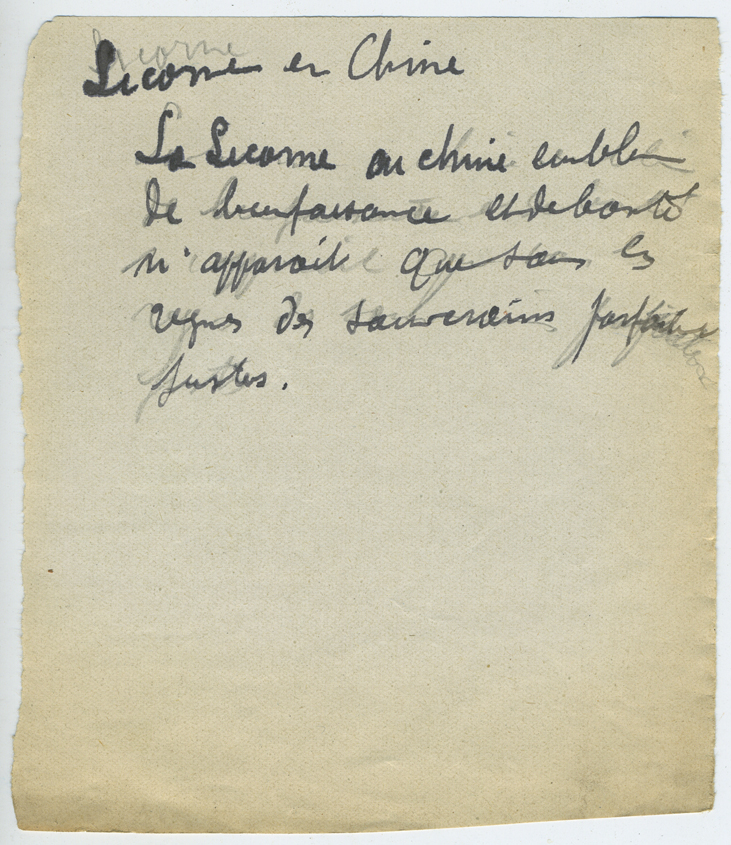 Licorne en Chine
La Licorne en chine emblem
de bienfaisance et de bonté
n'apparait que sous les
règnes des souverains parfaits
justes.